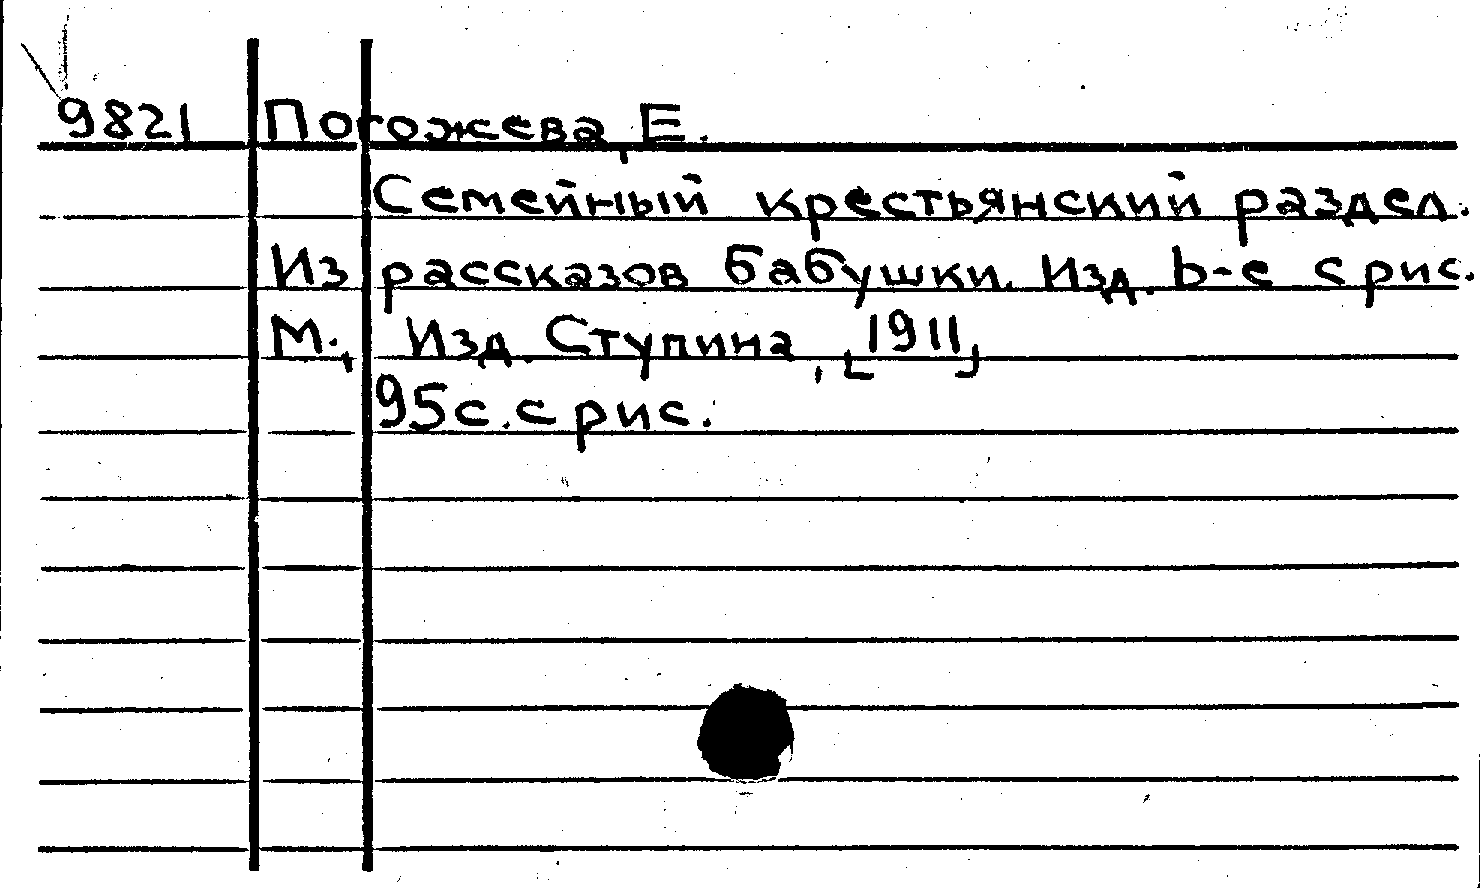 9821 Погожева, Е.
Семейный крестьянский раздел.
Из рассказов бабушки. Изд. 6-е с рис.
М., Изд. Ступина, [1911]
95 с. с рис.